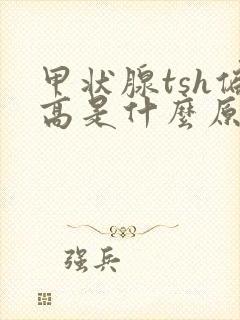 甲状腺tsh偏
高是什麼原
强兵